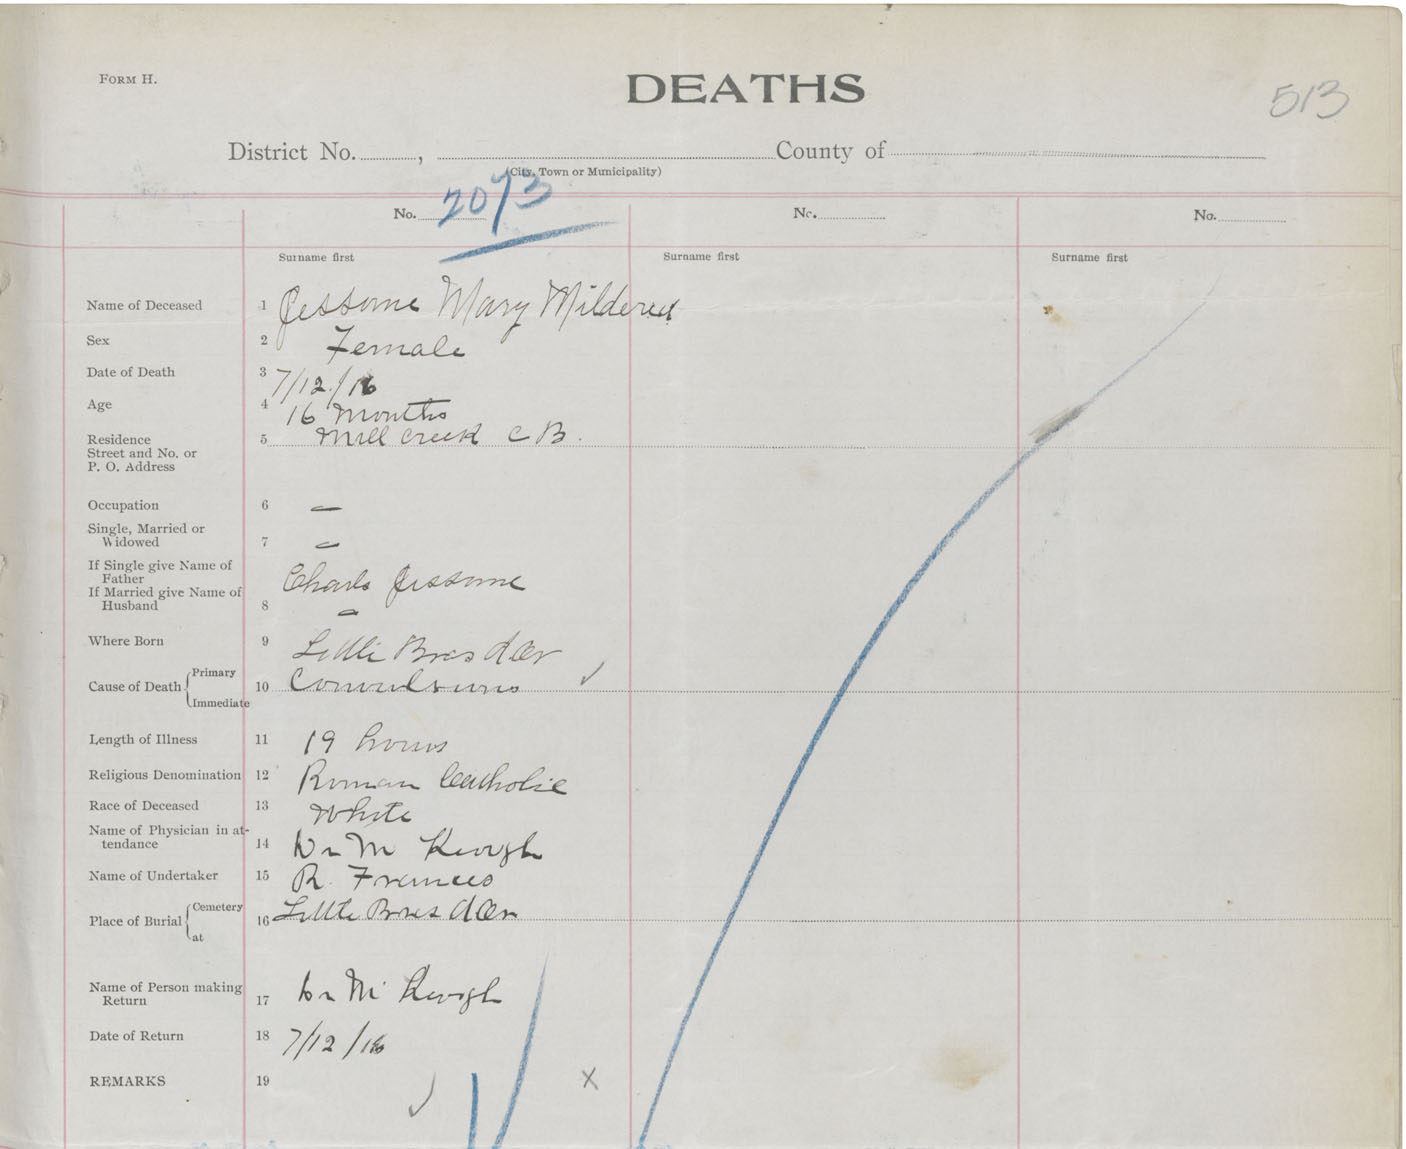 FORM H.
DEATHS
513
District No. , County of
(City, Town or Municipality)
No. 2073 No. No.
Surname first Surname first Surname first
Name of Deceased 1 Jessome Mary Mildered
Sex 2 Female
Date of Death 3 7/12/16
Age 4 16 Months
Residence 5 Mill Creek C B.
Street and No. or
P. O. Address
Occupation 6 —
Single, Married or
Widowed 7 —
If Single give Name of
Father Charls Jessome
If Married give Name of
Husband 8 —
Where Born 9 Little Bras d'Or
Cause of Death Primary 10 Convulsions ✓
Immediate
Length of Illness 11 19 hours
Religious Denomination 12 Roman Catholic
Race of Deceased 13 White
Name of Physician in at-
tendance 14 Dr M Keough
Name of Undertaker 15 R. Frances
Place of Burial Cemetery 16 Little Bras d'Or
at
Name of Person making
Return 17 Dr M Keough
Date of Return 18 7/12/16
REMARKS 19 x